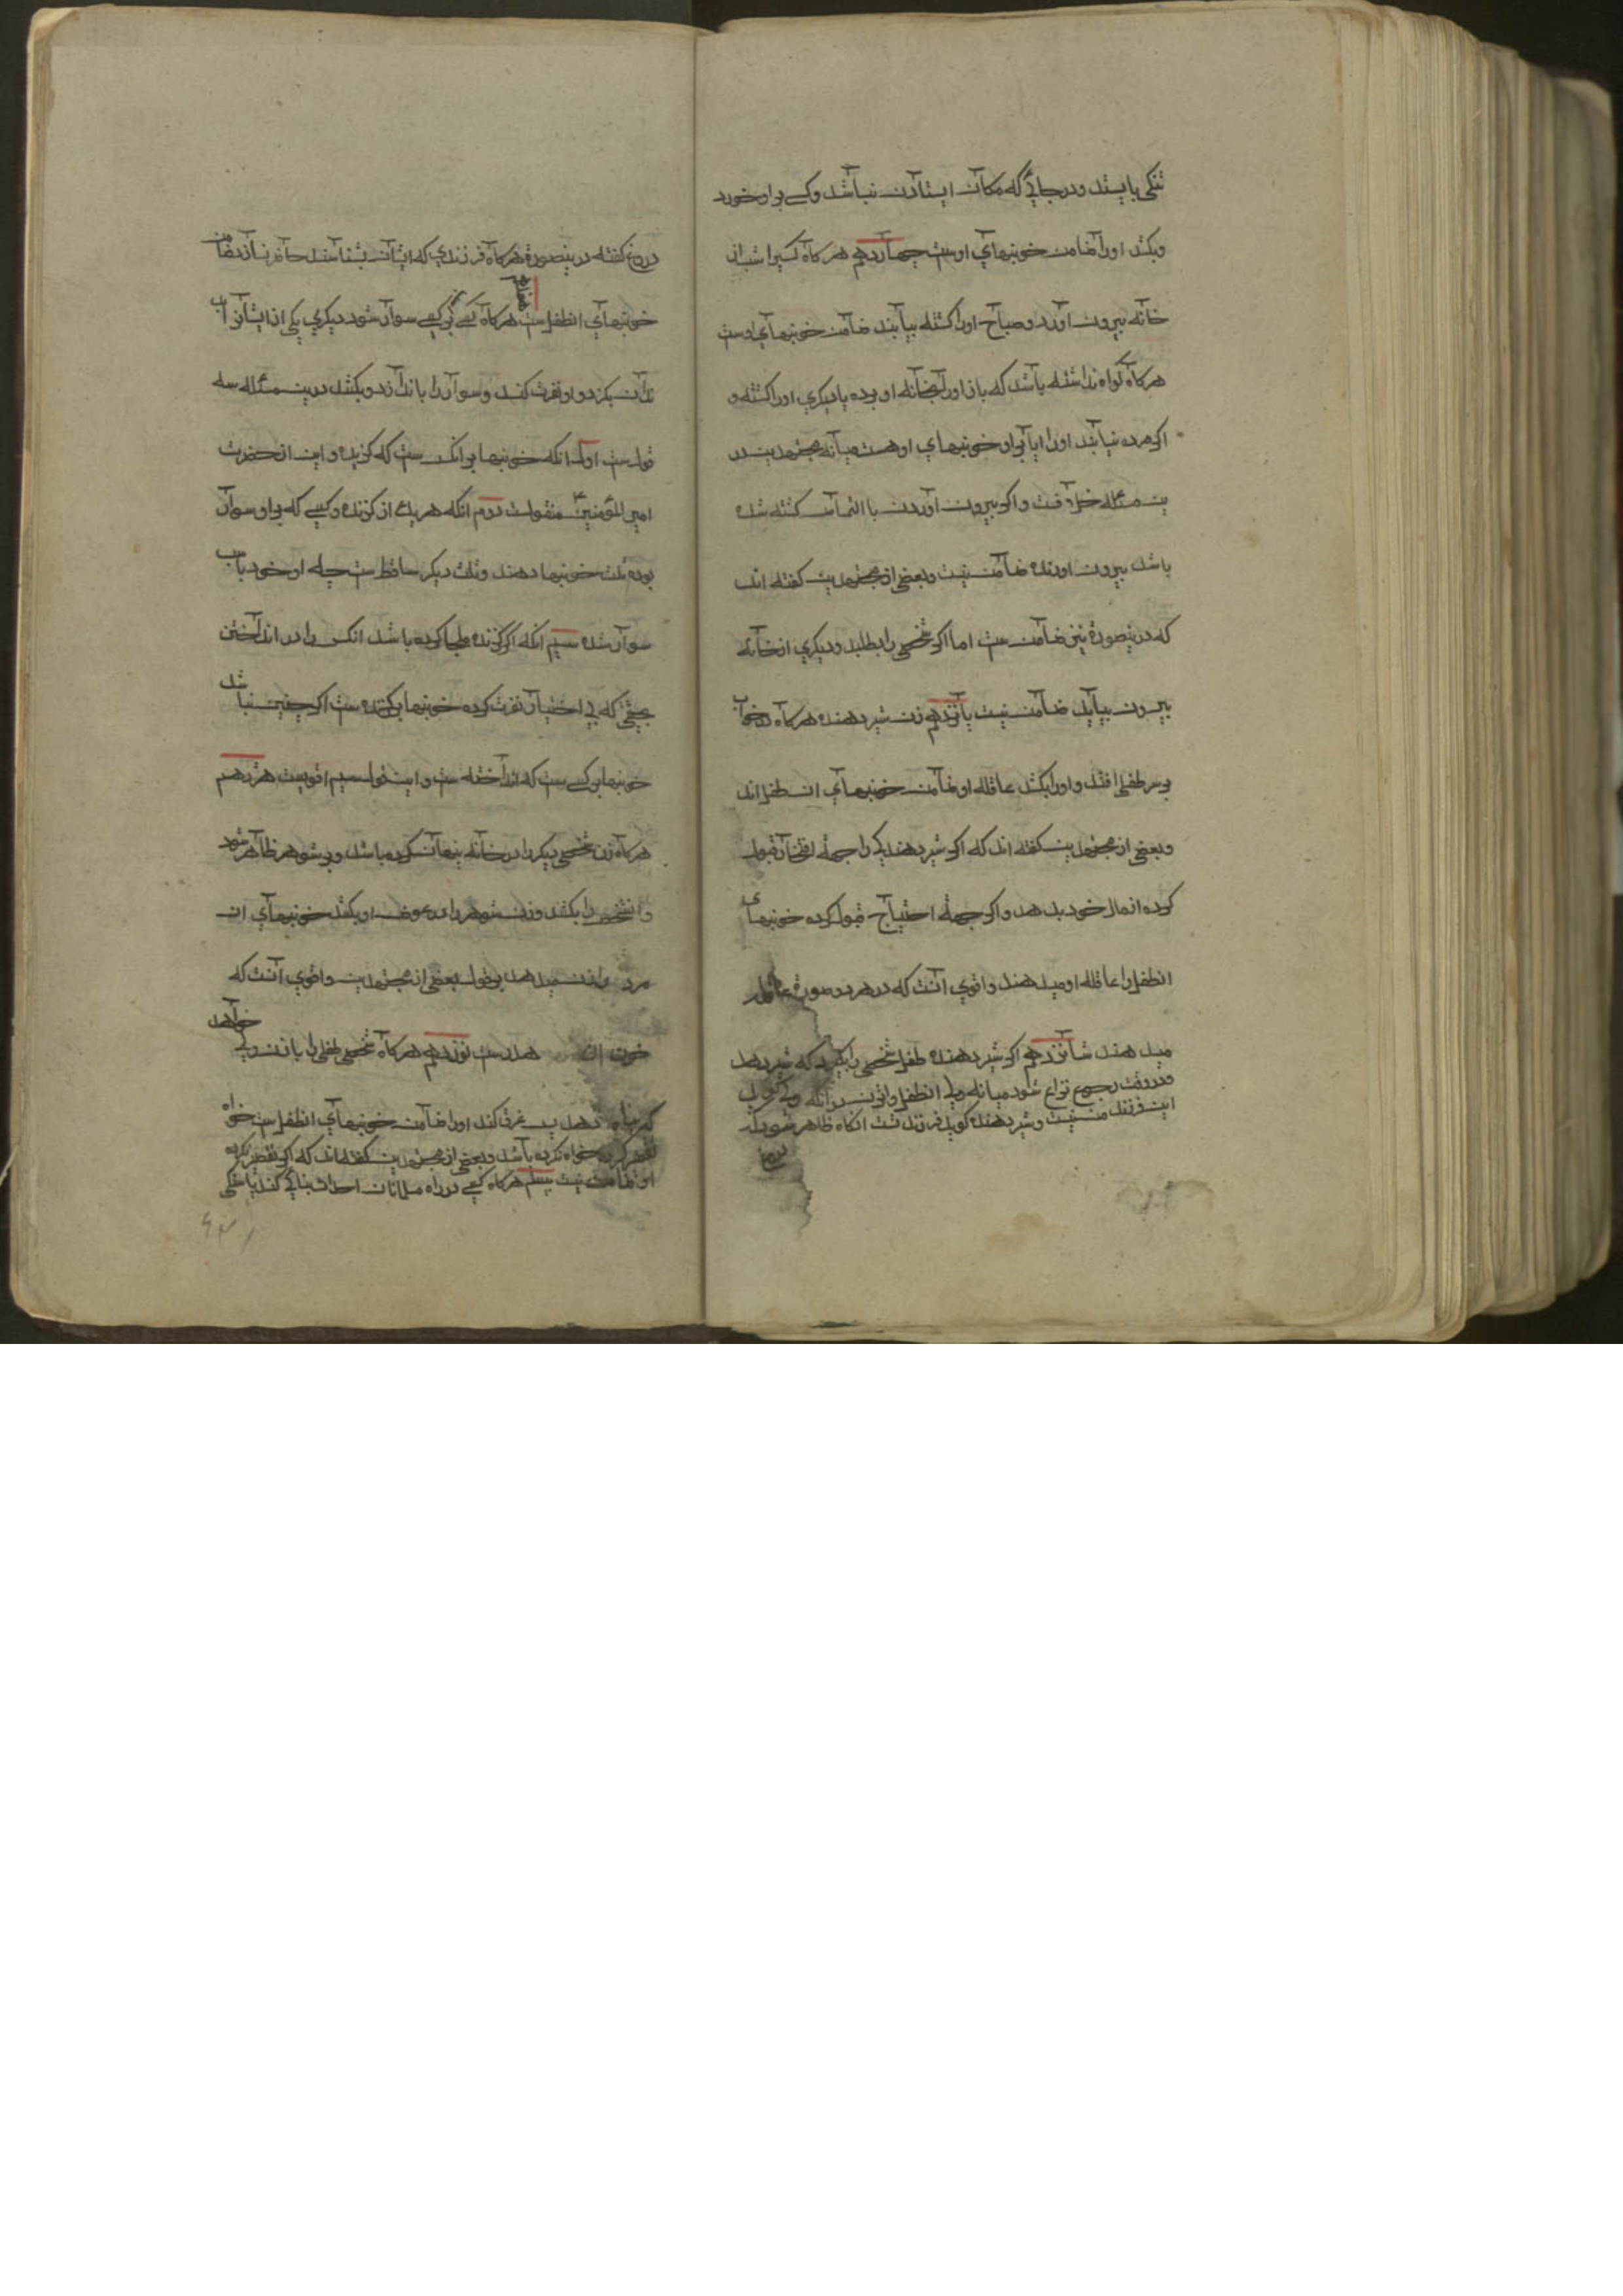 تنکی بایستد و در جائی که مکان ایستادن نباشد و کسے براو خورد
و بکشد اورا ضامن خونبهای اوست چهاردهم هرکاه کسیرا شب از
خانه بیرون اورد و صباح اورا کشته بیابند ضامن خونبهای اوست
هرکاه کواه نداشته باشد که باز اورا بخانه او برده یا دیکری اورا کشته و
اکر مرده بیابند اورا ایا براو خونبهای او هست میانه مجتهدین در
ین مسئاله خلافست و اکر بیرون آوردن با التماس کشته شده
باشد بیرون اورنده ضامن نیست و بعضی از مجتهدین کفته اند
که درینصورة نیز ضامن ست اما اکر شخصی را بطلبد و دیکری از خانه
بیرون بیاید ضامن نیست پانزدهم زن شیر دهنده هرکاه در خواب
بر سر طفلی افتد و اورا بکشد عاقله او ضامن خونبهای ان طفل اند
و بعضی از مجتهدین کفته اند که اکر شیر دهندکی را جهة افتخار قبول
کرده از مال خود بدهد و اکر جهة احتیاج قبول کرده خونبهای
انطفل را عاقله او میدهند و اقوی آنست که در هر دو صورة عاقله
میدهند شانزدهم اکر شیر دهنده طفل شخصی را بکیرد که شیر دهد
و در وقت رجوع نزاع شود میانه ولی انطفل و انزن در آنکه ولی کوید
این فرزند من نیست و شیر دهنده کوید فرزند تست انکاه ظاهر شود که
دروغ کفته درینصورة هرکاه فرزندی که ایشان بشناسند حاضر نسازد ضامن
خونبهای انطفل ست هفدهم هرکاه کسے بر کسے سوار شود دیکری یکی از ایشانرا
بدان بکزد و او نفرت کند و سوار را باندازد و بکشد درین مسئاله سه
قولست اول انکه خونبها بر انکس ست که کزیده و این از حضرت
امیر المؤمنین ع منقولست دوم انکه هر یک از کزنده و کسے که براو سوار
بوده ثلث خونبها دهند و ثلث دیکر ساقط ست چه او خود باعث
سوار شده سیم انکه اکر کزنده ملجا کرده باشد انکس را در انداختن
بحیثی که بی اختیار نفرت کرده خونبها بر کزنده ست اکر چنین نباشد
خونبها بر کسے ست که انداخته ست و این قول سیم اقویست هژدهم
هرکاه زن شخصی دیکر را در خانه پنهان کرده باشد و بر شوهر ظاهر شود
و انشخص را بکشد و زن شوهر را در عوض او بکشد خونبهای ان
مرد را زن میدهد بر قول بعضی از مجتهدین و اقوی آنست که
خون ان هدرست نوزدهم هرکاه شخصی طفلی را باذن ولی
پس غرق کند اورا ضامن خونبهای انطفل ست خواه
خواه نکرده باشد و بعضی از مجتهدین کفته اند که اکر تقصیر نکرده
او ضامن نیست بیستم هرکاه کسے در راه مسلمانان احداث بنائی کند یا سنکی